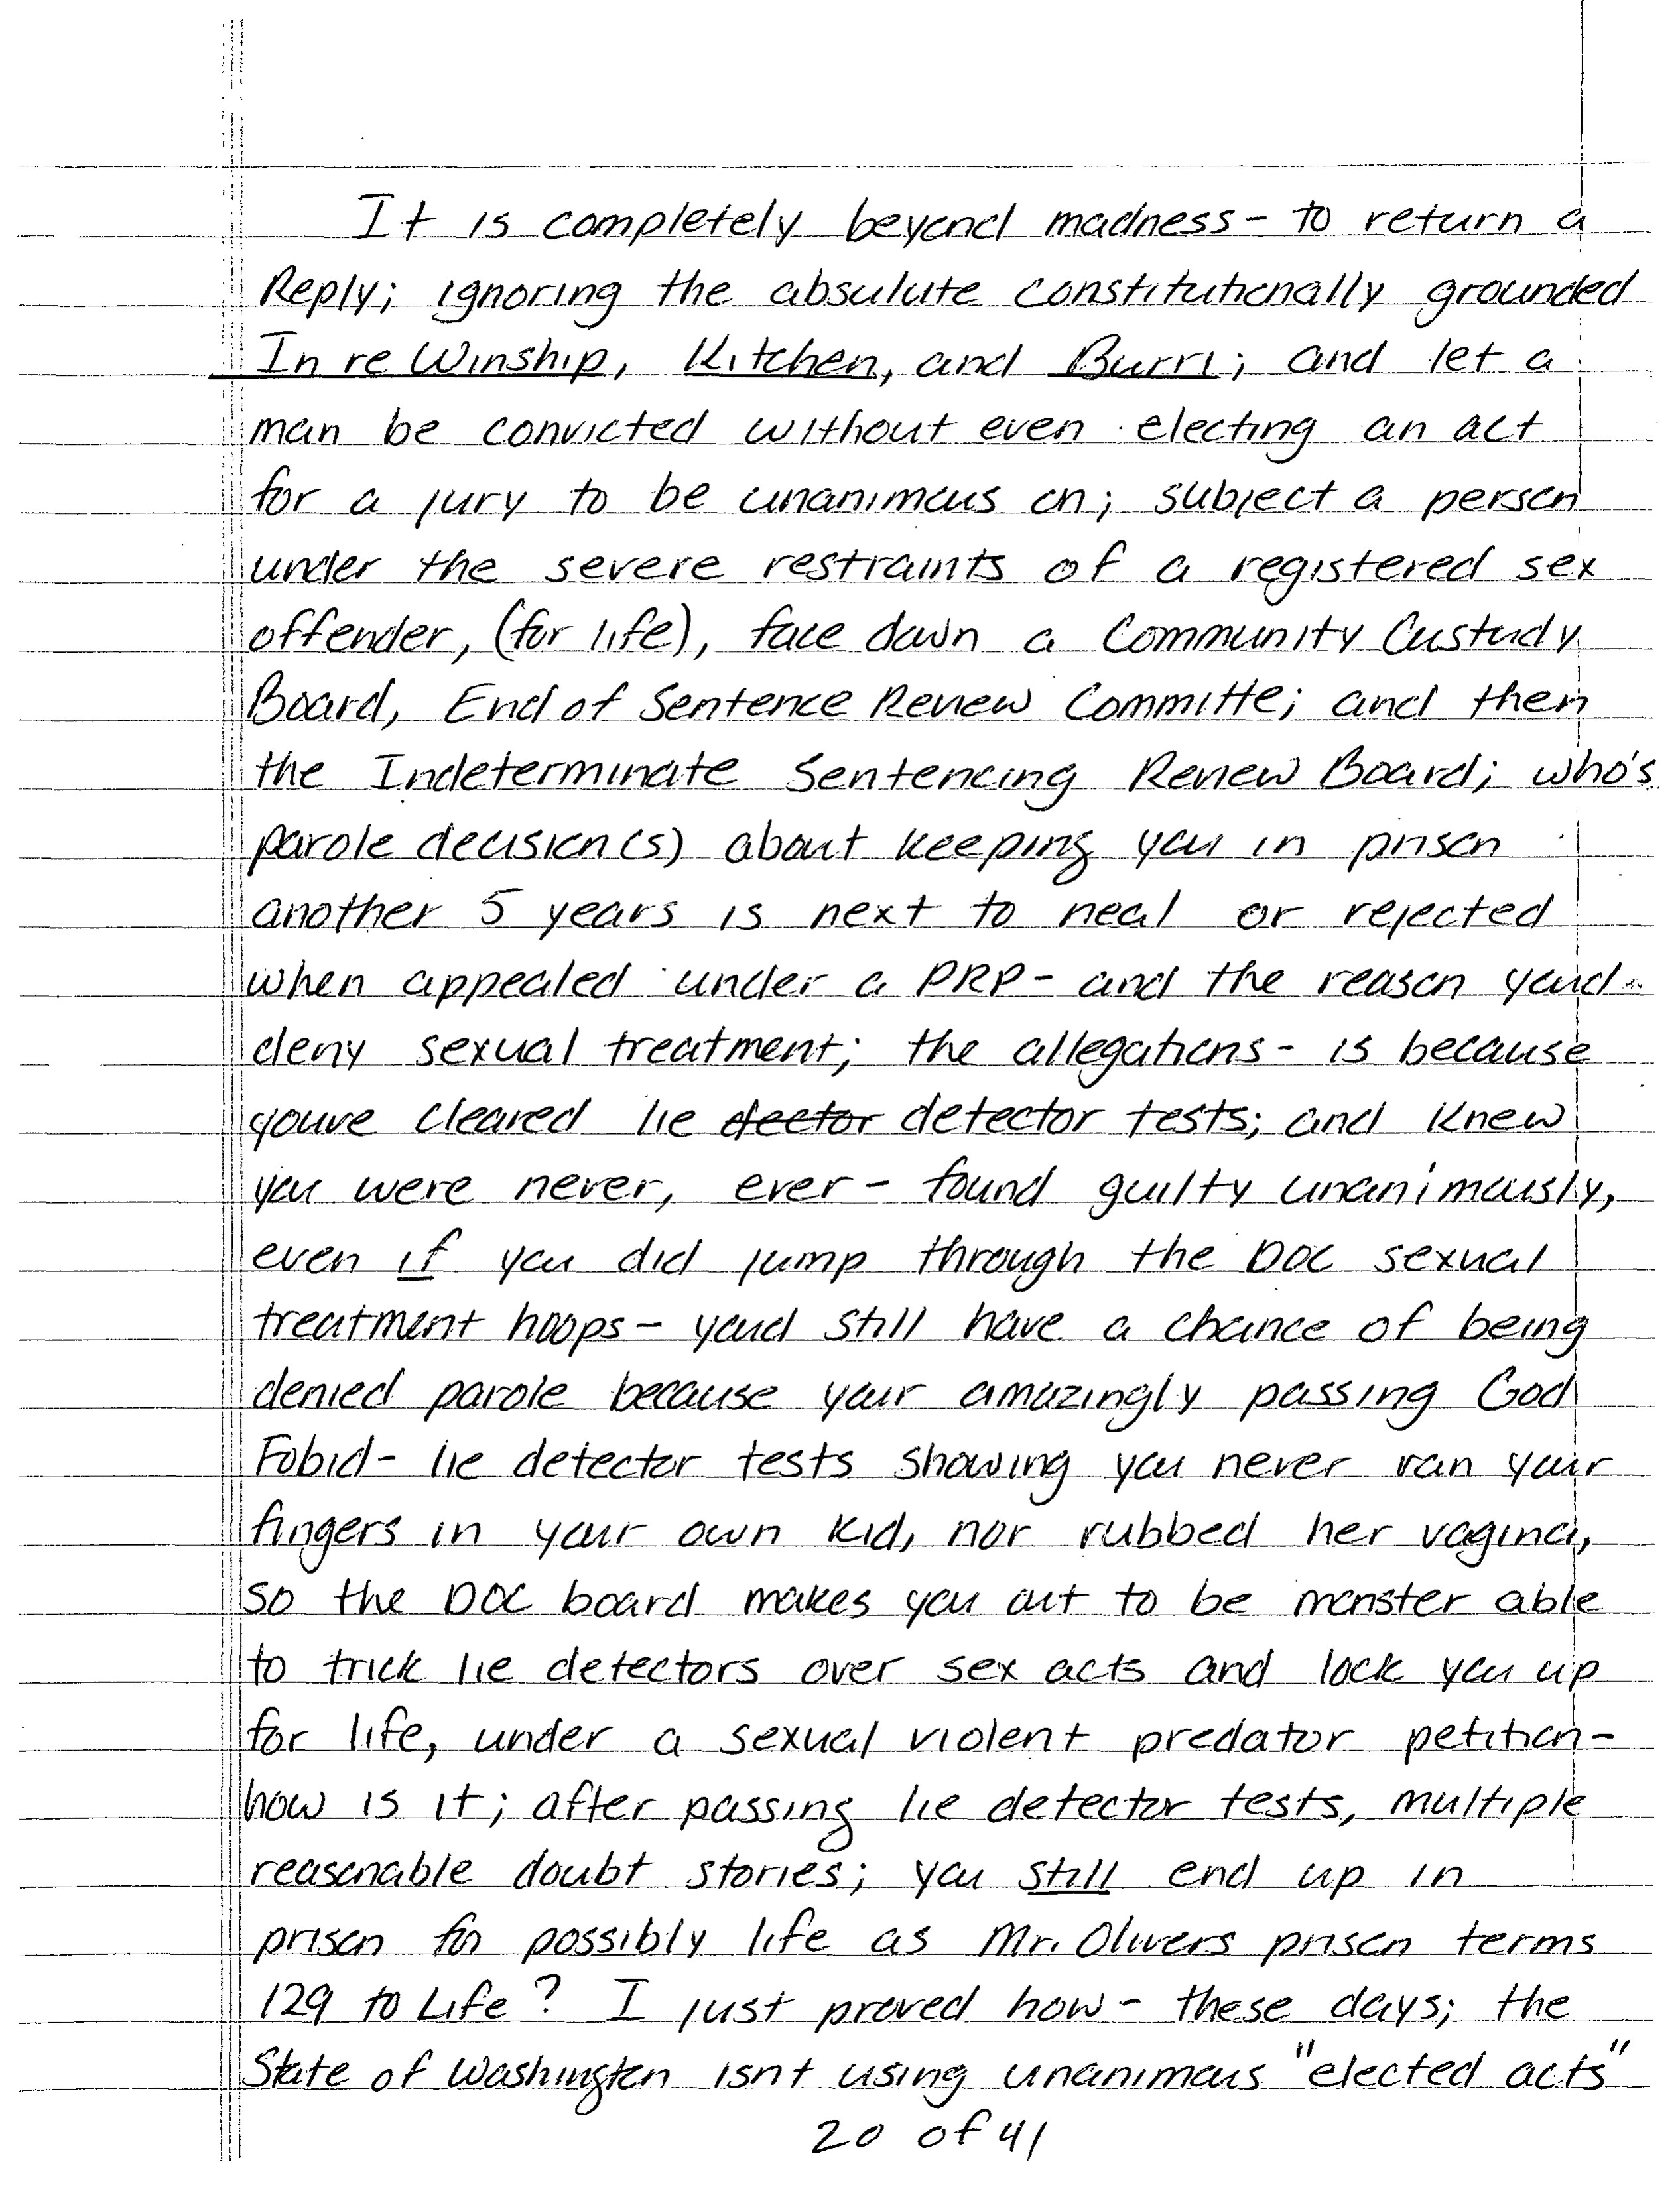 It is completely beyond madness - to return a
Reply; ignoring the absolute constitutionally grounded
In re Winship, Kitchen, and Burri; and let a
man be convicted without even electing an act
for a jury to be unanimous on; subject a person
under the severe restraints of a registered sex
offender, (for life), face down a Community Custody
Board, End of Sentence Review Committe; and then
the Indeterminate Sentencing Review Board; who's
parole decision(s) about keeping you in prison
another 5 years is next to neal or rejected
when appealed under a PRP - and the reason youd
deny sexual treatment; the allegations - is because
youve cleared lie dector detector tests; and knew
you were never, ever - found guilty unanimously,
even if you did jump through the DOC sexual
treatment hoops - youd still have a chance of being
denied parole because your amazingly passing God
Fobid - lie detector tests showing you never ran your
fingers in your own kid, nor rubbed her vagina,
so the DOC board makes you out to be monster able
to trick lie detectors over sex acts and lock you up
for life, under a sexual violent predator petition -
how is it; after passing lie detector tests, multiple
reasonable doubt stories; you still end up in
prison for possibly life as Mr. Olivers prison terms
129 to Life? I just proved how - these days; the
State of Washington isnt using unanimous "elected acts"
20 of 41